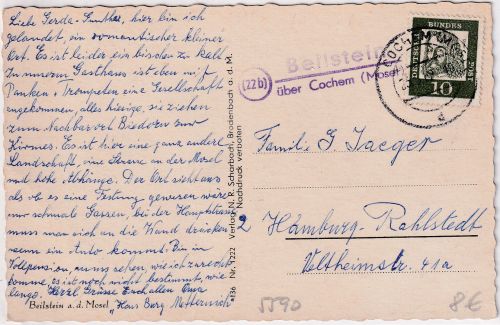 Liebe Gerda-Gunther, hier bin ich
gelandet, ein romantischer kleiner
Ort. Es ist leider ein bischen zu kalt
In unserem Gasthaus ist eben mit
Pauken u Trompeten eine Gesellschaft
angekommen alles hiesige, sie ziehen
zum Nachbarort Briedern zur
Kirmes. Es ist hier eine ganz andere
Landschaft, eine Strasse an der Mosel
und hohe Abhänge. Der Ort sieht aus
als ob es eine Festung gewesen wäre
nur schmale Gassen, bei der Hauptstrasse
muss man sich an die Wand drücken
wenn ein Auto kommt. Bin in
Vollpension, muss sehen, wie ich zurecht
komme es ist noch nicht bestimmt, wie
lange. Herzl. Grüsse Euch allen Oma
"Haus Burg Metternich"
Beilstein a. d. Mosel
*136 Nr. 7222 Verlag N. R. Scharbach, Brodenbach a. d. M.
Nachdruck verboten
(22b)
Beilstein
über Cochem (Mosel)
COCHEM
DEUTSCHE BUNDESPOST
10
Familie G Jaeger
2 Hamburg-Rahlstedt
Veltheimstr. 41a
5590
8€